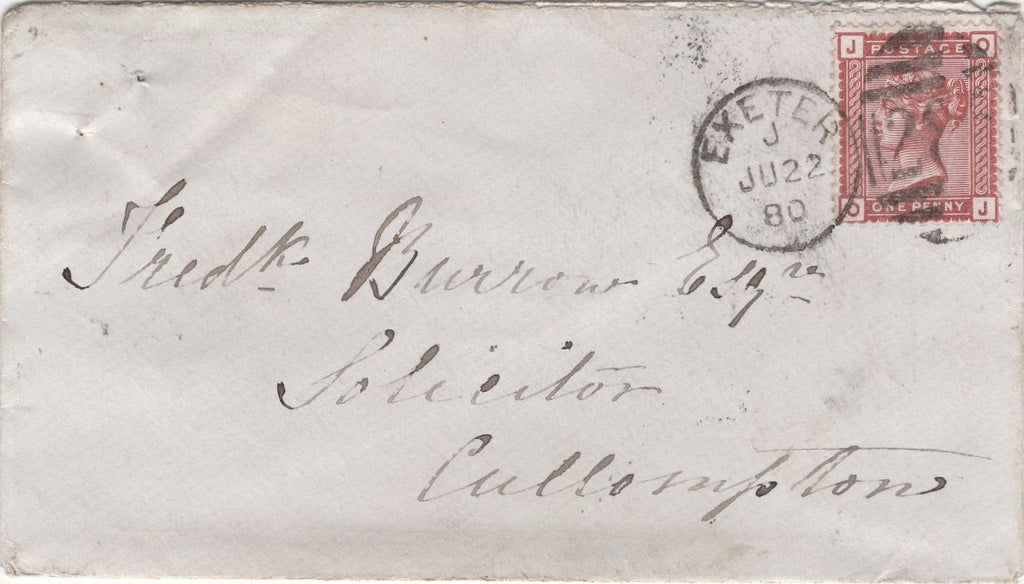 J POSTAGE O
EXETER
J
JU 22
80
O ONE PENNY J
Fredk Burrow Esqre
Solicitor
Cullompton